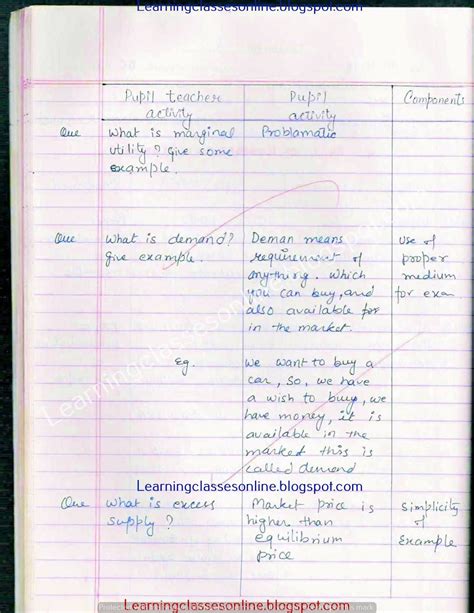 Learningclassesonline.blogspot.com
Pupil teacher Pupil Components
activity activity
Que What is marginal Problamatic
utility? Give some
example.
Que What is demand? Deman means Use of
Give example. requirement of proper
any-thing. Which medium
you can buy, and for exa
also available for
in the market.
Eg. We want to buy a
car, so, we have
a wish to buy, we
have money, it is
available in the
market this is
called demand
Learningclassesonline.blogspot.com
Que What is excess Market price is Simplicity
supply? higher than of
equilibrium Example
price
Learningclassesonline.blogspot.com
Learningclassesonline.blogspot.com